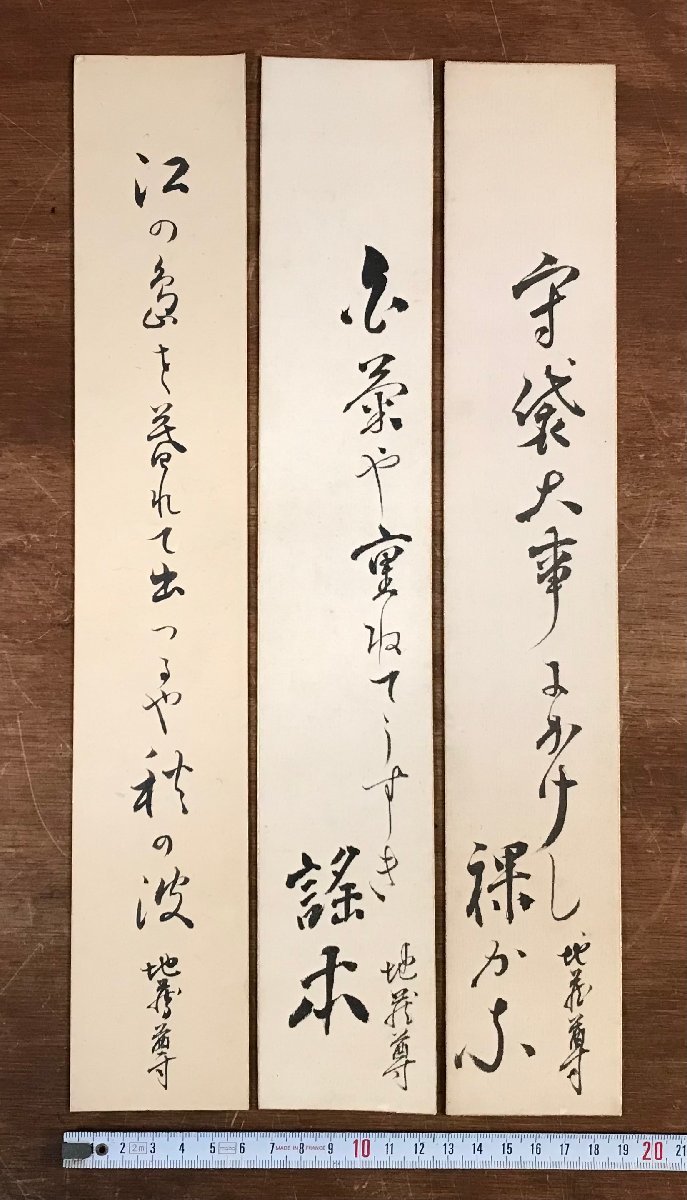 守袋大事にかけし
裸かな
地蔵尊
白菊や重ねてうすき
謡本
地蔵尊
江の島を暮れて出つるや秋の波
地蔵尊
1 2 3 4 5 6 7 8 9 10 11 12 13 14 15 16 17 18 19 20 21
2m
MADE IN FRANCE